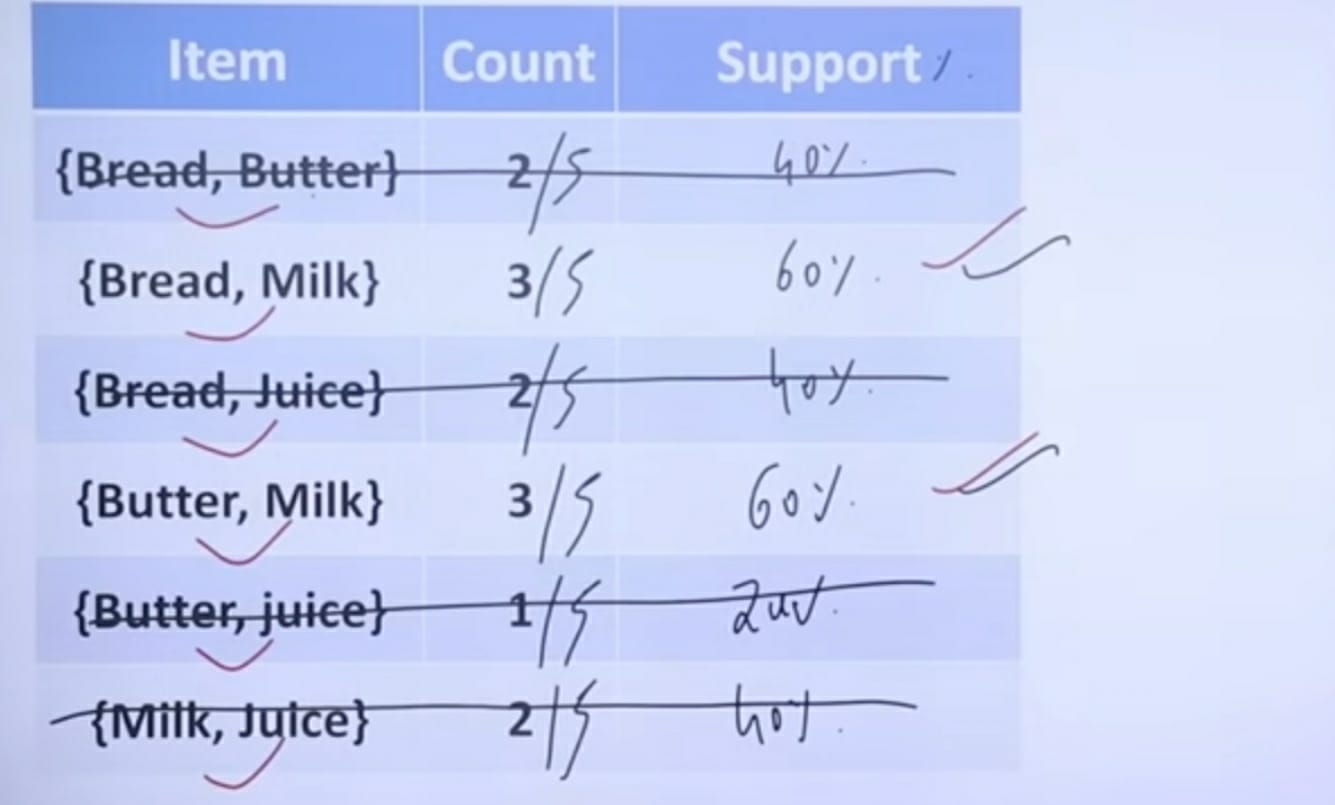 Item Count Support %
{Bread, Butter} 2/5 40%.
{Bread, Milk} 3/5 60%.
{Bread, Juice} 2/5 40%.
{Butter, Milk} 3/5 60%.
{Butter, juice} 1/5
{Milk, Juice} 2/5 40%.